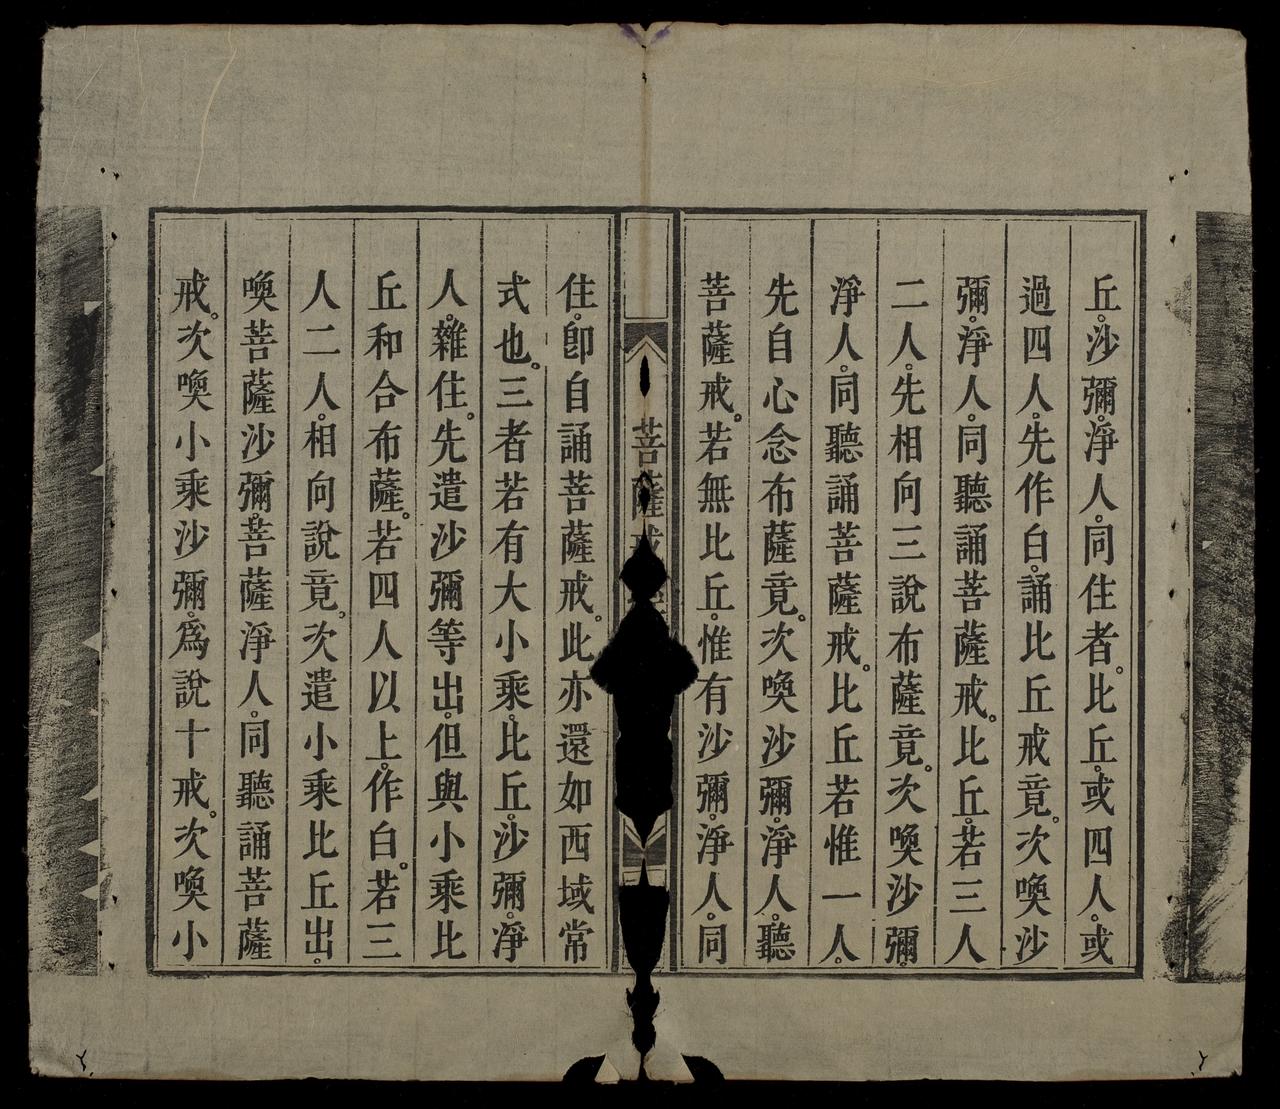 丘。沙彌。淨人。同住者。比丘。或四人。或
過四人。先作白。誦比丘戒竟。次喚沙
彌。淨人。同聽誦菩薩戒。比丘。若三人
二人。先相向三說布薩竟。次喚沙彌。
淨人。同聽誦菩薩戒。比丘若惟一人。
先自心念布薩竟。次喚沙彌。淨人。聽
菩薩戒。若無比丘。惟有沙彌。淨人。同
菩薩戒
住。卽自誦菩薩戒。此亦還如西域常
式也。三者若有大小乘。比丘。沙彌。淨
人。雜住。先遣沙彌等出。但與小乘比
丘和合布薩。若四人以上。作白。若三
人二人。相向說竟。次遣小乘比丘出。
喚菩薩沙彌。菩薩淨人。同聽誦菩薩
戒。次喚小乘沙彌。爲說十戒。次喚小